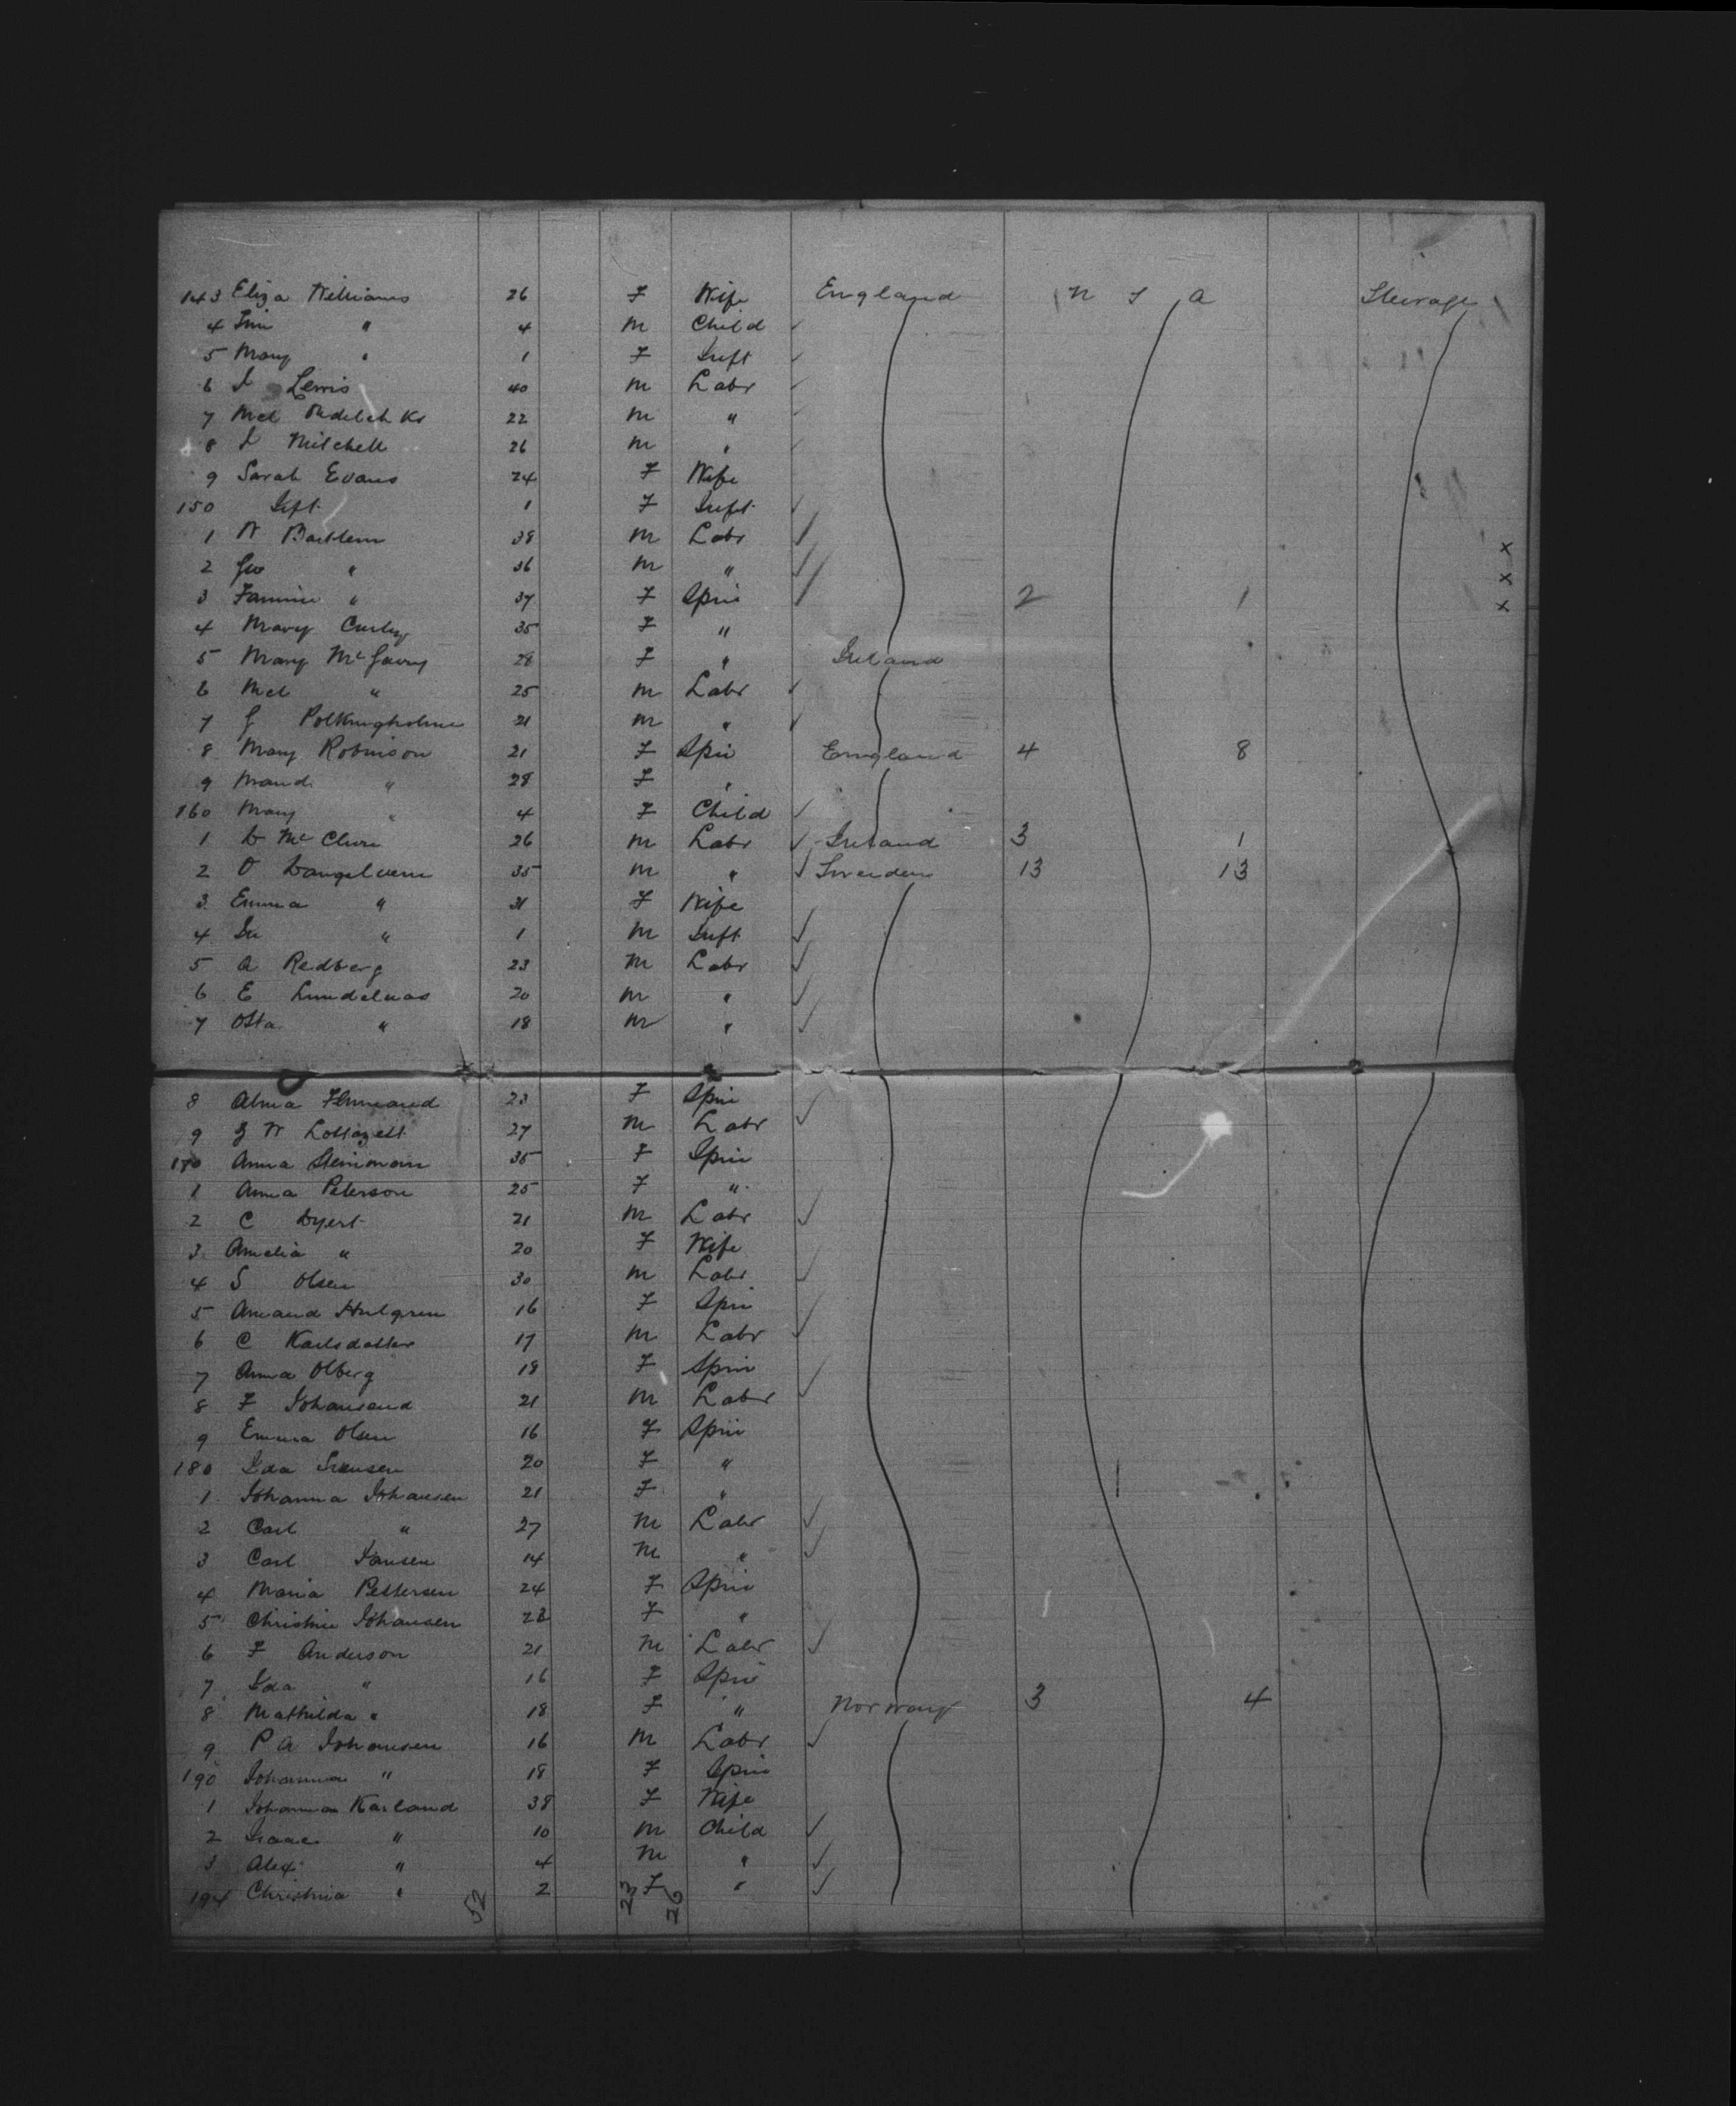 143 Eliza Williams 26 F Wife England U S A Steerage
4 Jni " 4 M Child
5 Mary " 1 F Inft
6 J Lewis 40 M Labr
7 Mcl 22 M "
8 J Mitchell 26 M "
9 Sarah Evans 24 F Wife
150 Inft 1 F Inft
1 W Bartlem 38 M Labr x
2 Geo " 36 M " x
3 Fannie " 37 F Spin 2 1 x
4 Mary Curley 35 F "
5 Mary McGarry 28 F " Ireland
6 Mcl " 25 M Labr
7 J Polkingholme 21 M "
8 Mary Robinson 21 F Spin England 4 8
9 Maud " 28 F "
160 Mary " 4 F Child
1 D McClure 26 M Labr Ireland 3 1
2 O 35 M " Sweden 13 13
3 Emma " 31 F Wife
4 " 1 M Inft
5 A Redberg 23 M Labr
6 E 20 M "
7 Otta " 18 M "
8 Alma 23 F Spin
9 27 M Labr
170 Anna Steinmann 35 F Spin
1 Anna Peterson 25 F "
2 C Dyert 21 M Labr
3 Amelia " 20 F Wife
4 S Olsen 30 M Labr
5 Amand Hulgren 16 F Spin
6 C Karlsdatter 17 M Labr
7 Anna Olberg 18 F Spin
8 F Johansand 21 M Labr
9 Emma Olsen 16 F Spin
180 Ida Svensen 20 F "
1 Johanna Johansen 21 F "
2 Carl " 27 M Labr
3 Carl Jansen 14 M "
4 Maria Pettersen 24 F Spin
5 Christine Johansen 23 F "
6 F Anderson 21 M Labr
7 Ida " 16 F Spin
8 Mathilda " 18 F " Norway 3 4
9 P A Johansen 16 M Labr
190 Johanna " 18 F Spin
1 Johanna Karland 38 F Wife
2 Isaac " 10 M Child
3 Alex " 4 M "
194 Christina " 2 F "
52 23 26